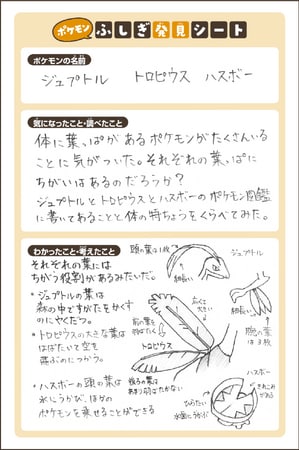 ポケモン ふしぎ発見シート
ポケモンの名前
ジュプトル　トロピウス　ハスボー
気になったこと・調べたこと
体に葉っぱがあるポケモンがたくさんいる
ことに気がついた。それぞれの葉っぱに
ちがいはあるのだろうか?
ジュプトルとトロピウスとハスボーのポケモン図鑑
に書いてあることと体の特ちょうをくらべてみた。
わかったこと・考えたこと
それぞれの葉には
ちがう役割があるみたいだ。
・ジュプトルの葉は
森の中ですがたをかくす
のにやくだつ。
・トロピウスの大きな葉は
はばたいて空を
飛ぶのにつかう。
・ハスボーの頭の葉は
水にうかび、ほかの
ポケモンを乗せることができる
頭の葉は1枚
ジュプトル
細長い
細長い
腕の葉
は3枚
広くて
大きい
前の葉を
羽ばたく
トロピウス
後ろの葉は
あまり羽ばたかない
ハスボー
きれこみ
がある
ひらたい
水面にうかぶ